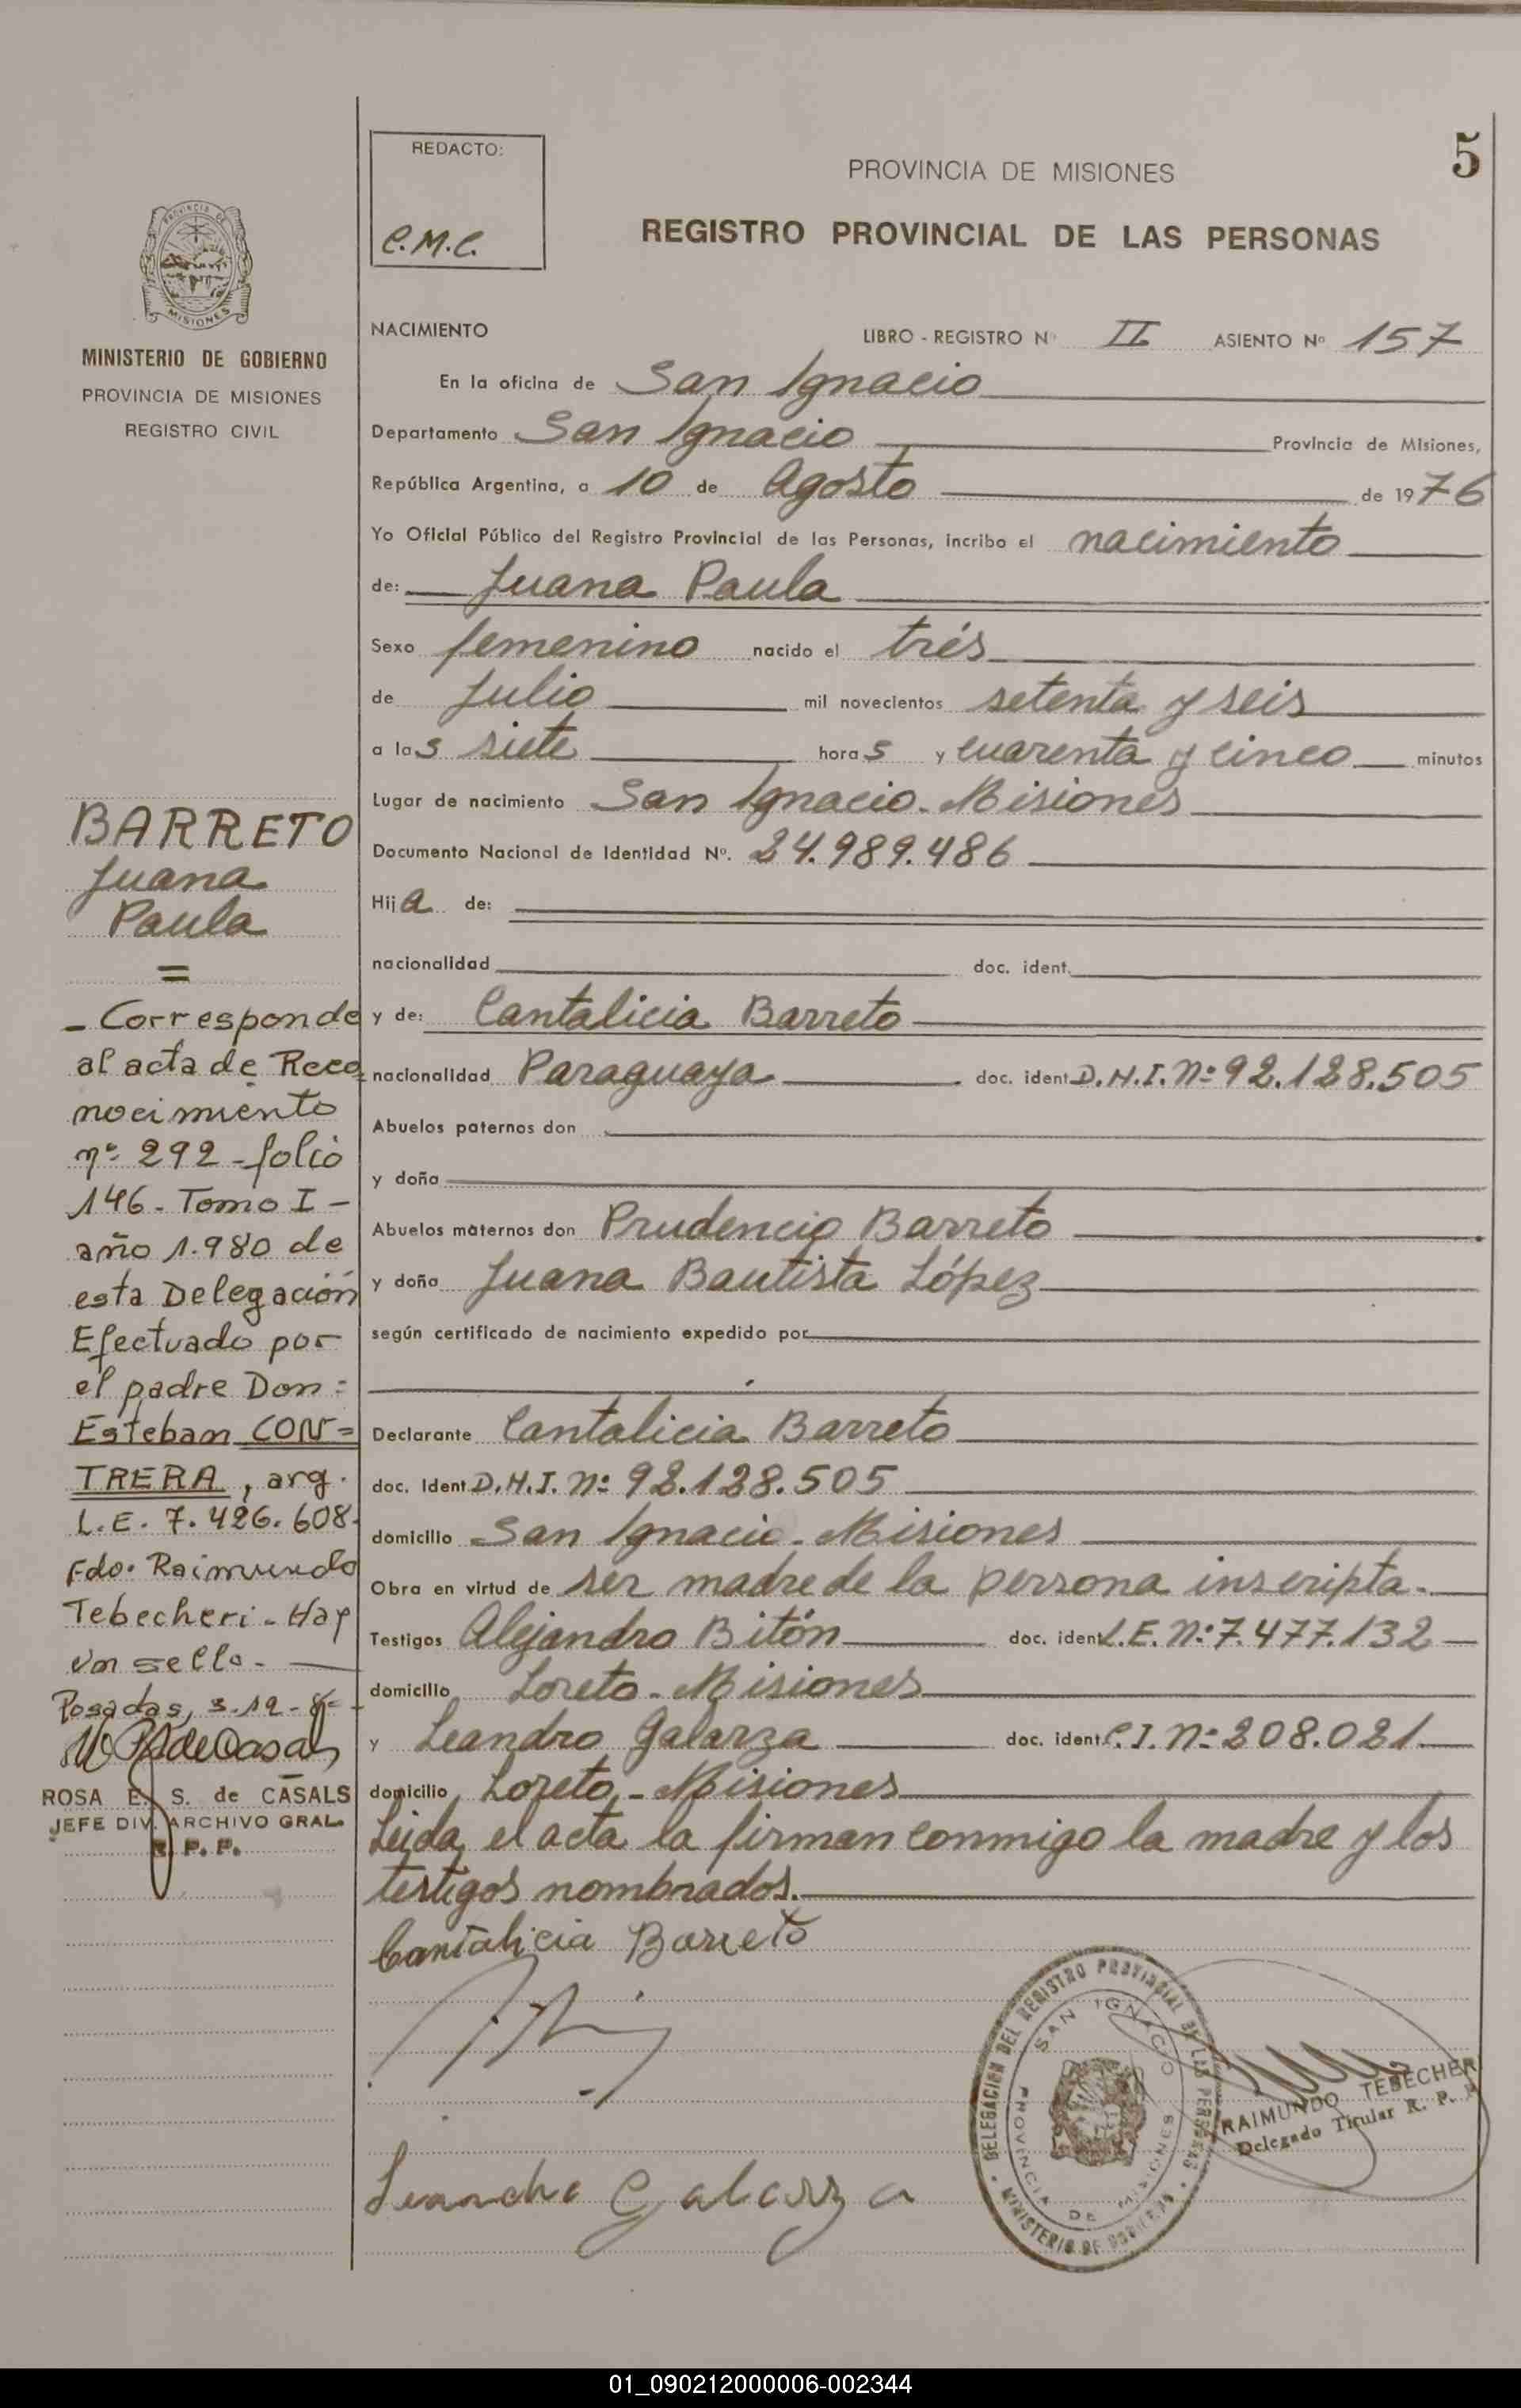 REDACTO:
C.M.C.
PROVINCIA DE MISIONES
5
REGISTRO PROVINCIAL DE LAS PERSONAS
PROVINCIA DE
MISIONES
MINISTERIO DE GOBIERNO
PROVINCIA DE MISIONES
REGISTRO CIVIL
BARRETO
Juana
Paula
=
- Corresponde
al acta de Reco
nocimiento
nº 292 - folio
146 - Tomo I -
año 1.980 de
esta Delegación
Efectuado por
el padre Don:
Esteban CON=
TRERA, arg.
L.E. 7.426.608.
Fdo. Raimundo
Tebecheri - Hay
un sello.
Posadas, 3-12-8
ROSA E. S. de CASALS
JEFE DIV. ARCHIVO GRAL.
R. P. P.
NACIMIENTO LIBRO - REGISTRO Nº II ASIENTO Nº 157
En la oficina de San Ignacio
Departamento San Ignacio Provincia de Misiones,
República Argentina, a 10 de Agosto de 1976
Yo Oficial Público del Registro Provincial de las Personas, incribo el nacimiento
de: Juana Paula
Sexo femenino nacido el trés
de Julio mil novecientos setenta y seis
a las siete horas y cuarenta y cinco minutos
Lugar de nacimiento San Ignacio - Misiones
Documento Nacional de Identidad Nº. 24.989.486
Hija de:
nacionalidad doc. ident.
y de: Cantalicia Barreto
nacionalidad Paraguaya doc. ident. D.N.I. Nº 92.128.505
Abuelos paternos don
y doña
Abuelos maternos don Prudencio Barreto
y doña Juana Bautista López
según certificado de nacimiento expedido por
Declarante Cantalicia Barreto
doc. Ident. D.N.I. Nº 92.128.505
domicilio San Ignacio - Misiones
Obra en virtud de ser madre de la persona inscripta.
Testigos Alejandro Bitón doc. ident. L.E. Nº 7.477.132
domicilio Loreto - Misiones
y Leandro Galarza doc. ident. C.I. Nº 208.021
domicilio Loreto - Misiones
Leida el acta la firman conmigo la madre y los
testigos nombrados.
Cantalicia Barreto
Leandro Galarza
DELEGACION DEL REGISTRO PROVINCIAL DE LAS PERSONAS
SAN IGNACIO
PROVINCIA DE MISIONES
MINISTERIO DE GOBIERNO
RAIMUNDO TEBECHER
Delegado Titular R. P. P.
01_090212000006-002344